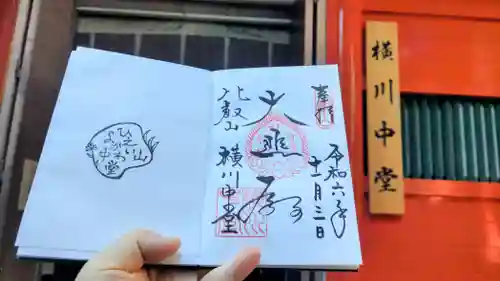 横川中堂
奉拝
令和六年
十一月三日
大
比叡山 横川中堂
ひえい山
よかわ
中堂